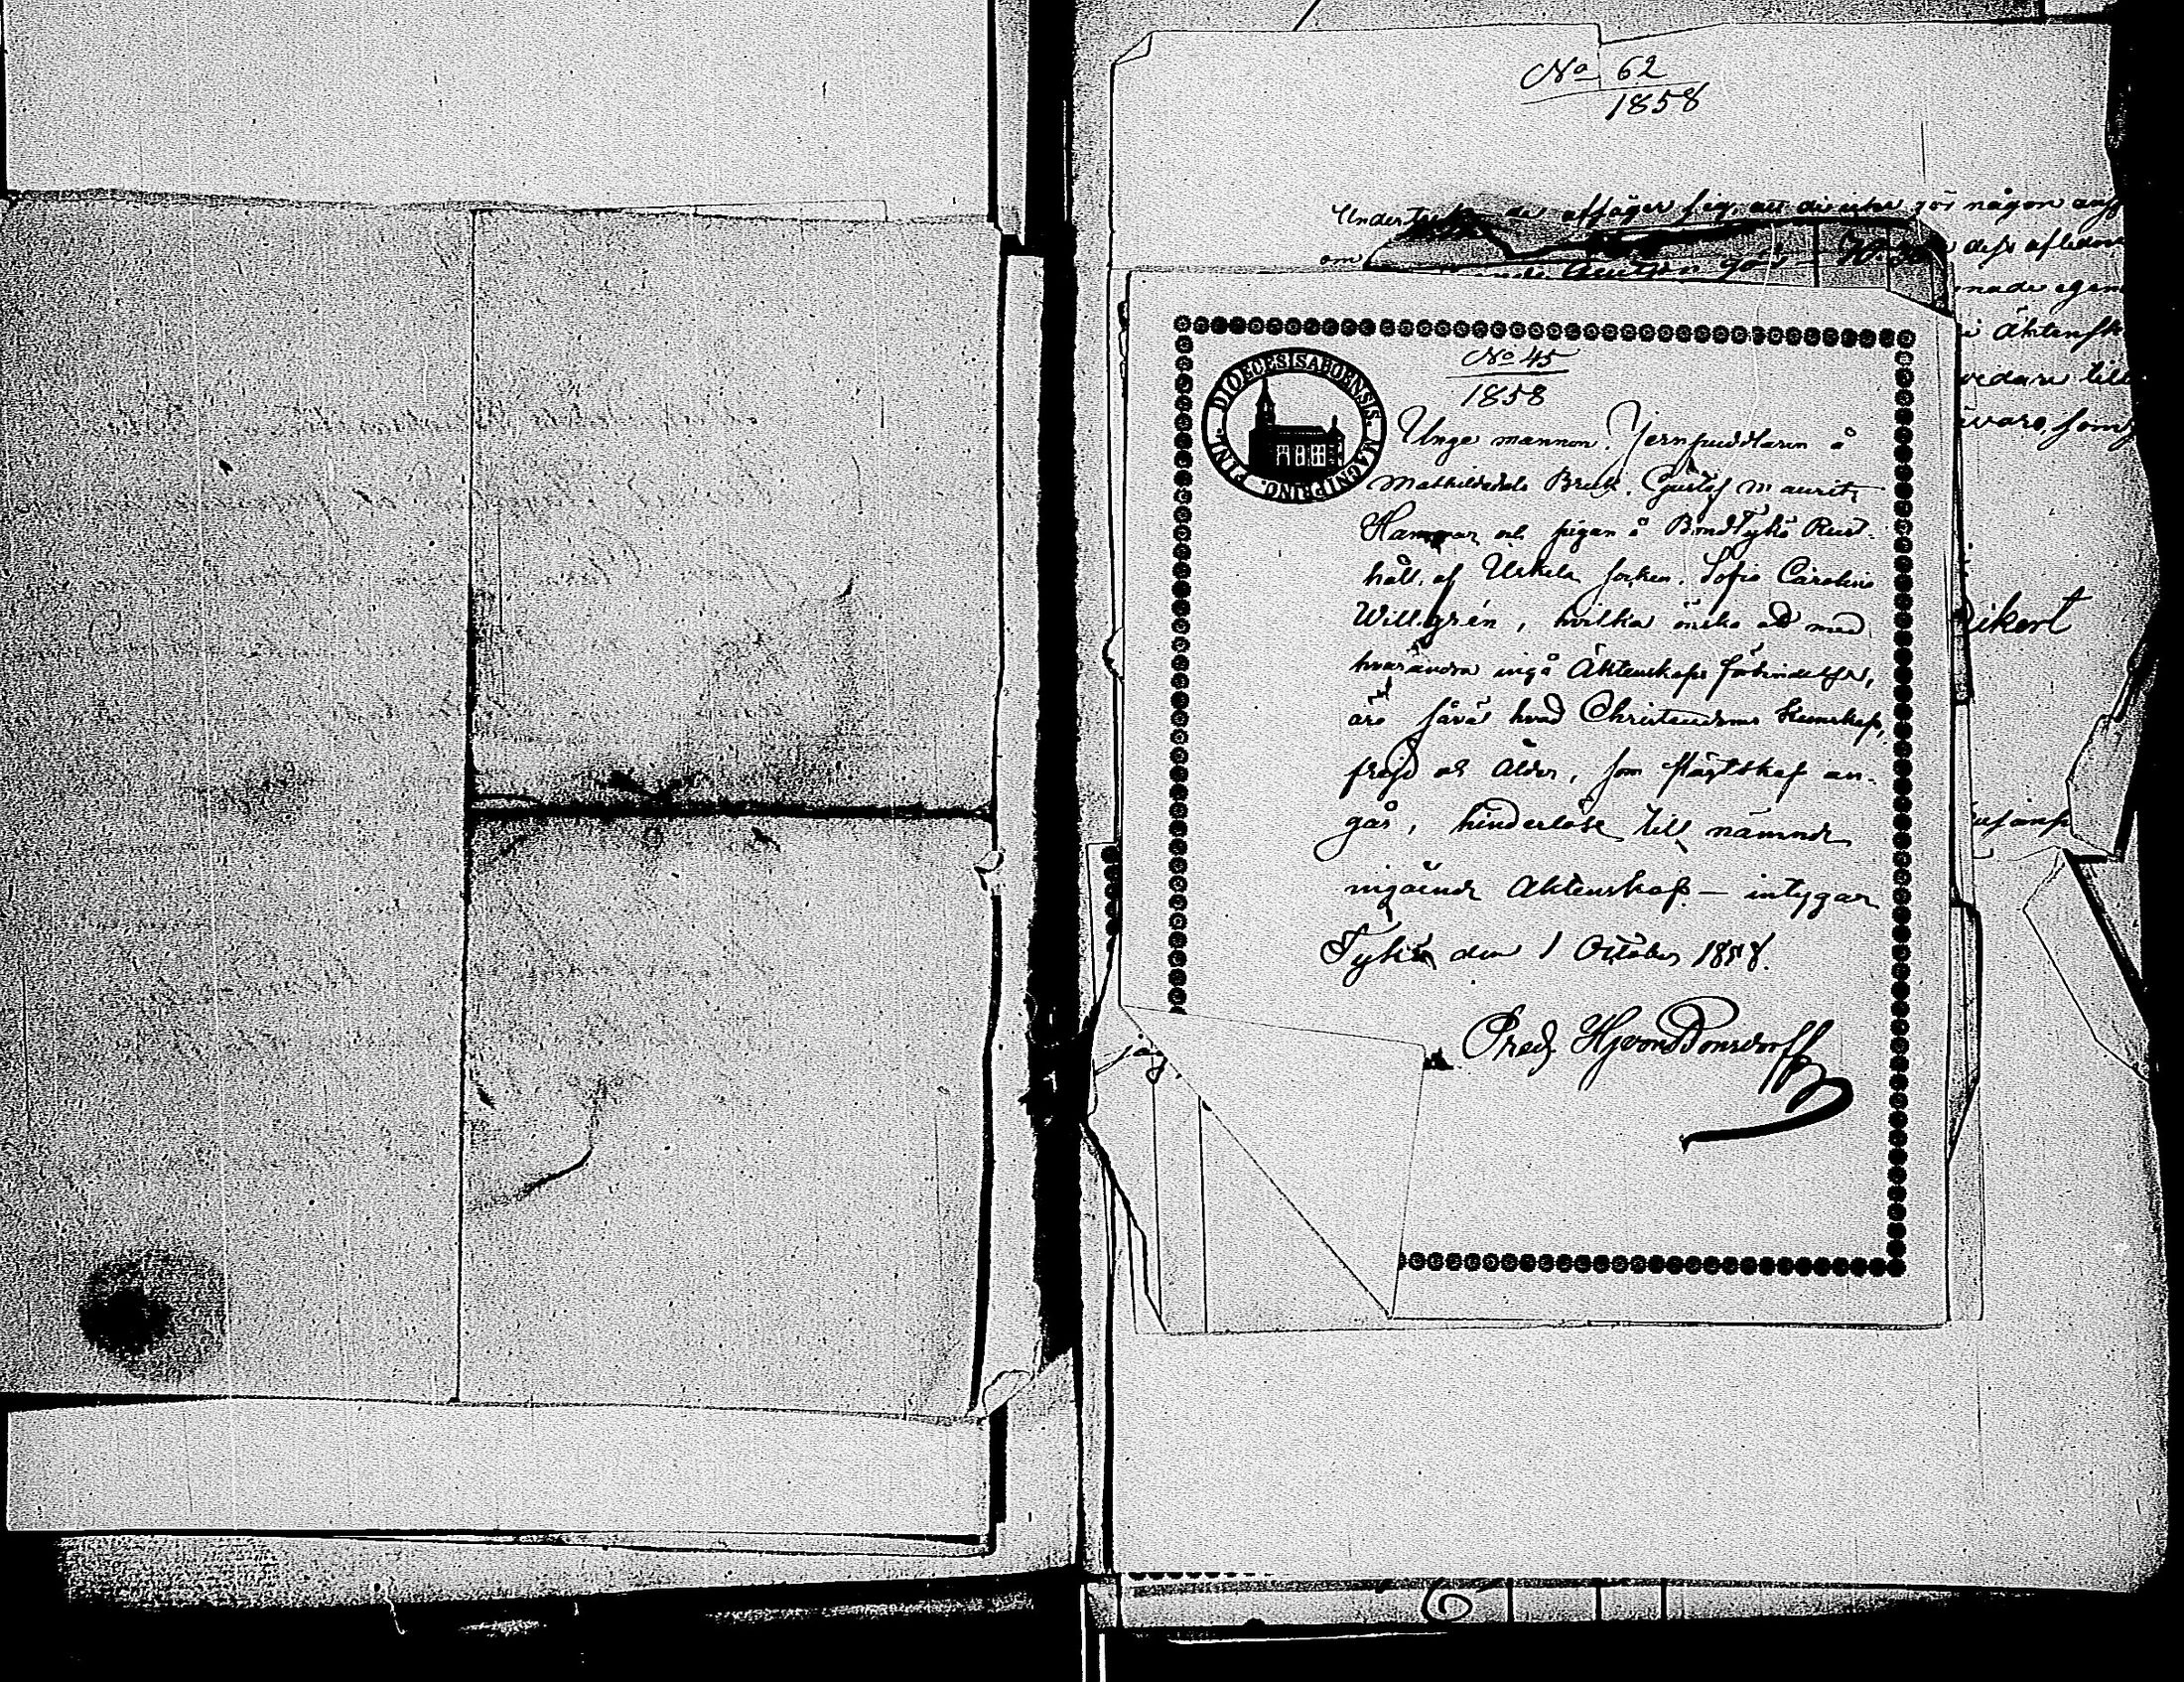 No 62
1858
afsäger sig, att
någon
om
dess
Äktensk
vare, som
ikert
No 45
1858
DIOECESIS ABOENSIS. MAGNI PRINC. FINL.
Unge mannen, Jernsmidlaren å
Mathildedals Bruk, Gustaf Mauritz
Hammar och pigan å Bondtykö Rust-
håll, af Uskela socken, Sofia Carolina
Willgrén, hvilka önska att med
hvarandra ingå Äktenskaps förbindelse,
äro såväl hvad Christendoms kunskap,
frejd och ålder, som slägtskap an-
går, hinderlöse till nämnde
ingående Äktenskap — intygar
Tykö den 1 October 1858.
Fred. Hj von Bonsdorff
jag